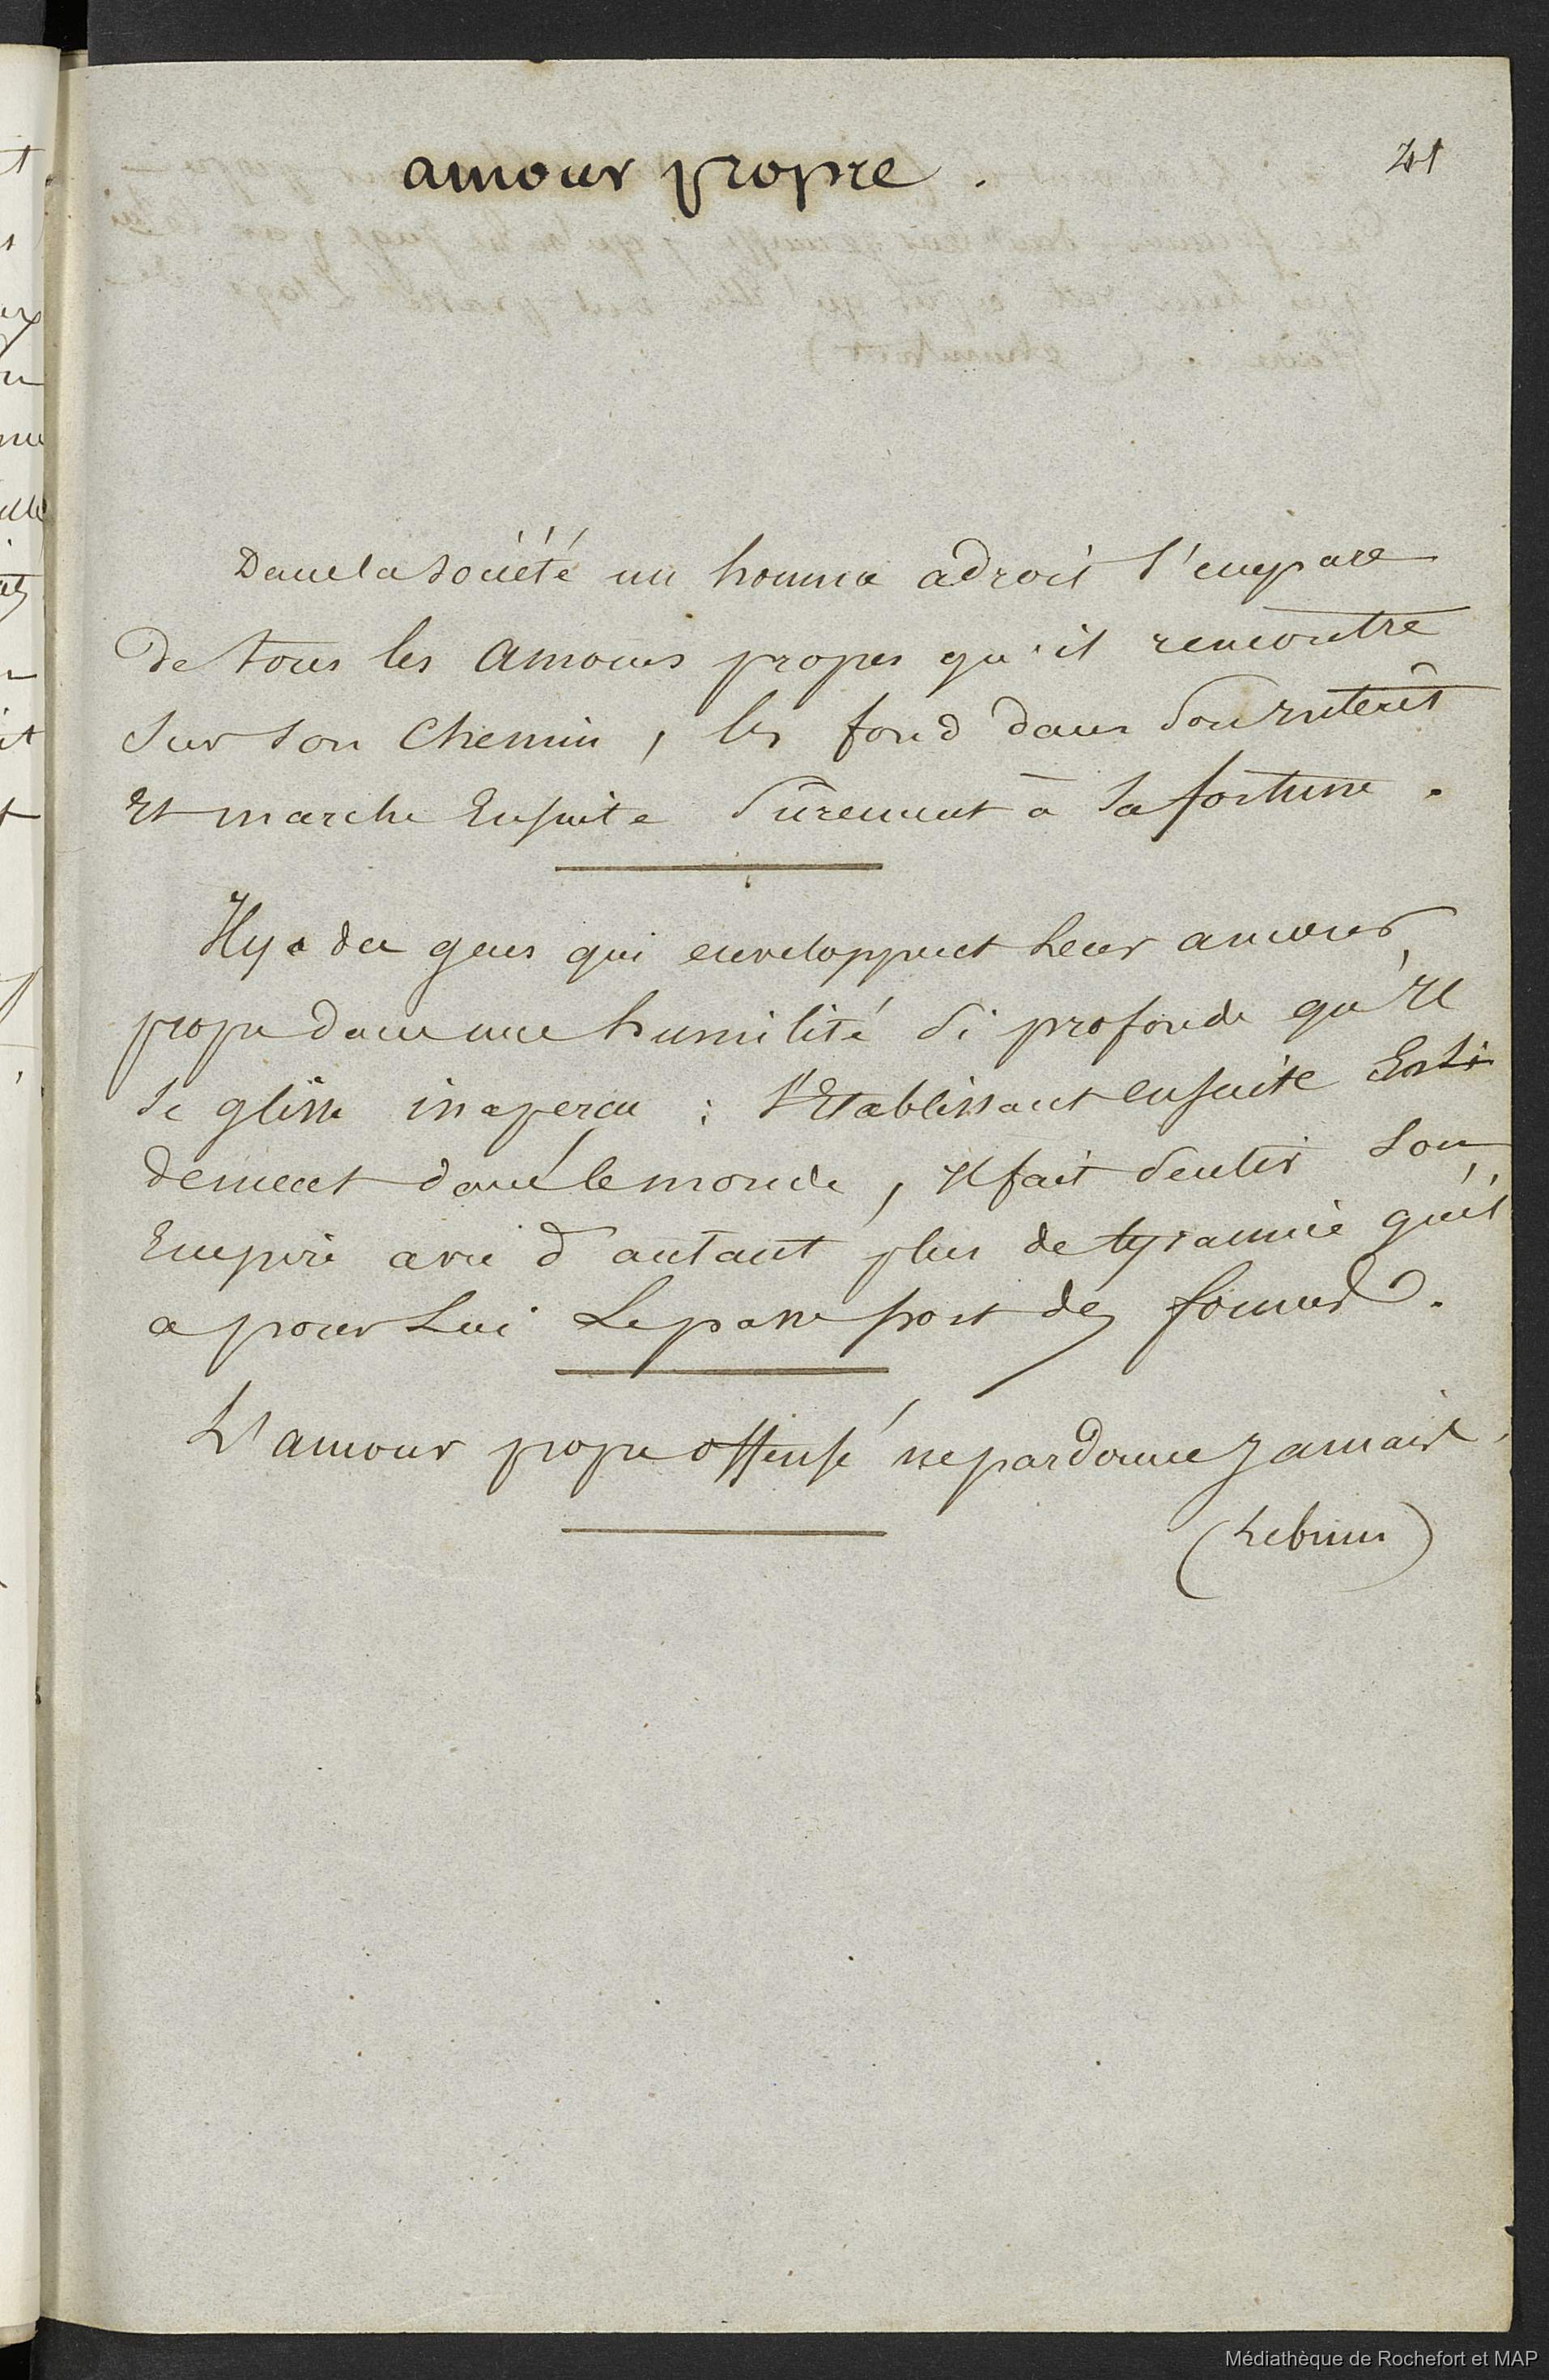 amour propre .
41
Dans la société un homme adroit s'empare
de tous les amours propres qu'il rencontre
sur son chemin, les fond dans son interêt
et marche ensuite sûrement à sa fortune.
Il y a des gens qui enveloppent leur amour
propre dans une humilité si profonde qu'il
se glisse inaperçu : s'établissant ensuite
dans le monde, il fait sentir son
Empire avec d'autant plus de tyrannie qu'il
a pour lui le passeport des formes.
L'amour propre offensé ne pardonne jamais.
(Lebrun)
Médiathèque de Rochefort et MAP